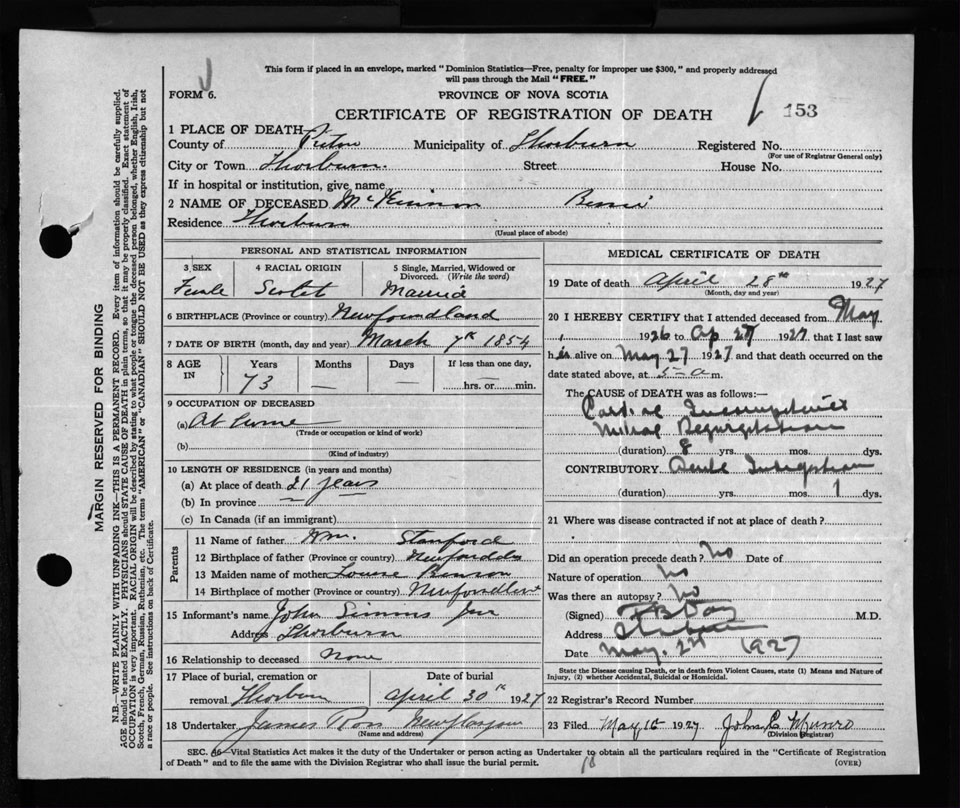 This form if placed in an envelope, marked "Dominion Statistics—Free, penalty for improper use $300," and properly addressed
will pass through the Mail "FREE."
FORM 6.
PROVINCE OF NOVA SCOTIA
CERTIFICATE OF REGISTRATION OF DEATH
153
1 PLACE OF DEATH—
County of Pictou Municipality of Thorburn Registered No.
(For use of Registrar General only)
City or Town Thorburn. Street House No.
If in hospital or institution, give name
2 NAME OF DECEASED McKinnon Bessie
Residence Thorburn
(Usual place of abode)
PERSONAL AND STATISTICAL INFORMATION
3 SEX 4 RACIAL ORIGIN 5 Single, Married, Widowed or
Divorced. (Write the word)
Female Scotch Married
6 BIRTHPLACE (Province or country) Newfoundland
7 DATE OF BIRTH (month, day and year) March 7th 1854
8 AGE Years Months Days If less than one day,
IN 73 — — hrs. or min.
9 OCCUPATION OF DECEASED
(a) At home
(Trade or occupation or kind of work)
(b)
(Kind of industry)
10 LENGTH OF RESIDENCE (in years and months)
(a) At place of death 21 years
(b) In province —
(c) In Canada (if an immigrant)
Parents
11 Name of father Wm. Stanford
12 Birthplace of father (Province or country)
13 Maiden name of mother Louise
14 Birthplace of mother (Province or country)
15 Informant's name John Simms Jnr
Address Thorburn
16 Relationship to deceased none
17 Place of burial, cremation or Date of burial
removal Thorburn April 30th 1927
18 Undertaker James Ross New Glasgow
(Name and address)
MEDICAL CERTIFICATE OF DEATH
19 Date of death April 28th 1927
(Month, day and year)
20 I HEREBY CERTIFY that I attended deceased from May
1926 to Ap 27 1927 that I last saw
her alive on May 27 1927 and that death occurred on the
date stated above, at 5-a m.
The CAUSE OF DEATH was as follows:—
Mitral Regurgitation
(duration) 8 yrs. mos. dys.
CONTRIBUTORY. Acute
(duration) yrs. mos. 1 dys.
21 Where was disease contracted if not at place of death?
Did an operation precede death? No Date of
Nature of operation No
Was there an autopsy? No
(Signed) M.D.
Address
Date May. 1927
State the Disease causing Death, or in death from Violent Causes, state (1) Means and Nature of
Injury, (2) whether Accidental, Suicidal or Homicidal.
22 Registrar's Record Number
23 Filed May 16 1927 John C Munro
(Division Registrar)
SEC. 46—Vital Statistics Act makes it the duty of the Undertaker or person acting as Undertaker to obtain all the particulars required in the "Certificate of Registration
of Death" and to file the same with the Division Registrar who shall issue the burial permit.
(OVER)
MARGIN RESERVED FOR BINDING
N.B.—WRITE PLAINLY WITH UNFADING INK—THIS IS A PERMANENT RECORD. Every item of information should be carefully supplied.
AGE should be stated EXACTLY. PHYSICIANS should STATE CAUSE OF DEATH in plain terms, so that it may be properly classified. Exact statement of
OCCUPATION is very important. RACIAL ORIGIN will be described by stating to what people or tongue the deceased person belonged, whether English, Irish,
Scotch, French, German, Russian, Ruthenian, etc. The terms "AMERICAN" or "CANADIAN" SHOULD NOT BE USED as they express citizenship but not
a race or people. See instructions on back of Certificate.